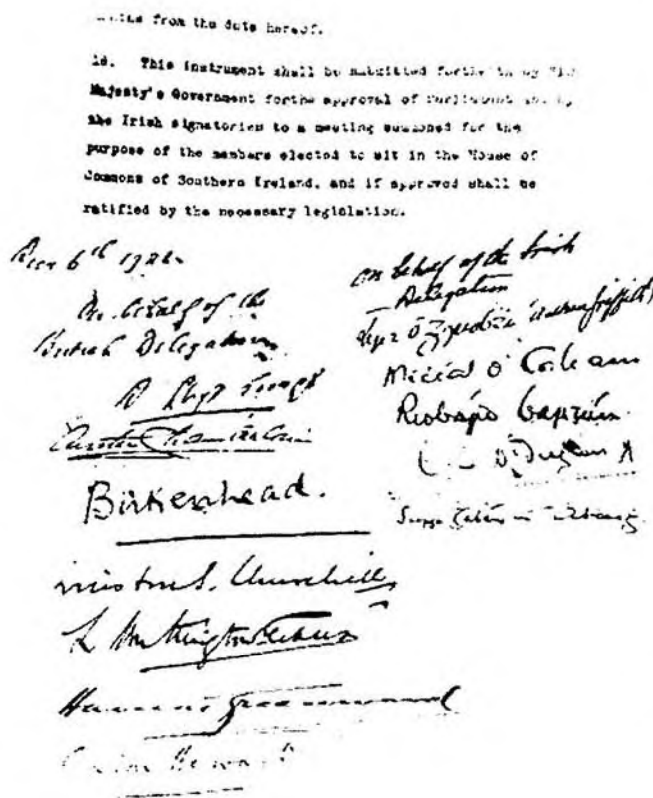 from the date hereof.
18. This instrument shall be submitted forthwith by His
Majesty's Government forthe approval of Parliament and by
the Irish signatories to a meeting summoned for the
purpose of the members elected to sit in the House of
Commons of Southern Ireland, and if approved shall be
ratified by the necessary legislation.
Decr 6th 1921
On behalf of the
British Delegation
D Lloyd George
Austen Chamberlain
Birkenhead.
Winston S. Churchill
L Worthington-Evans
Hamar Greenwood
Gordon Hewart
On behalf of the Irish
Delegation
Art Ó Gríobhtha (Arthur Griffith)
Mícheál Ó Coileain
Riobárd Bartún